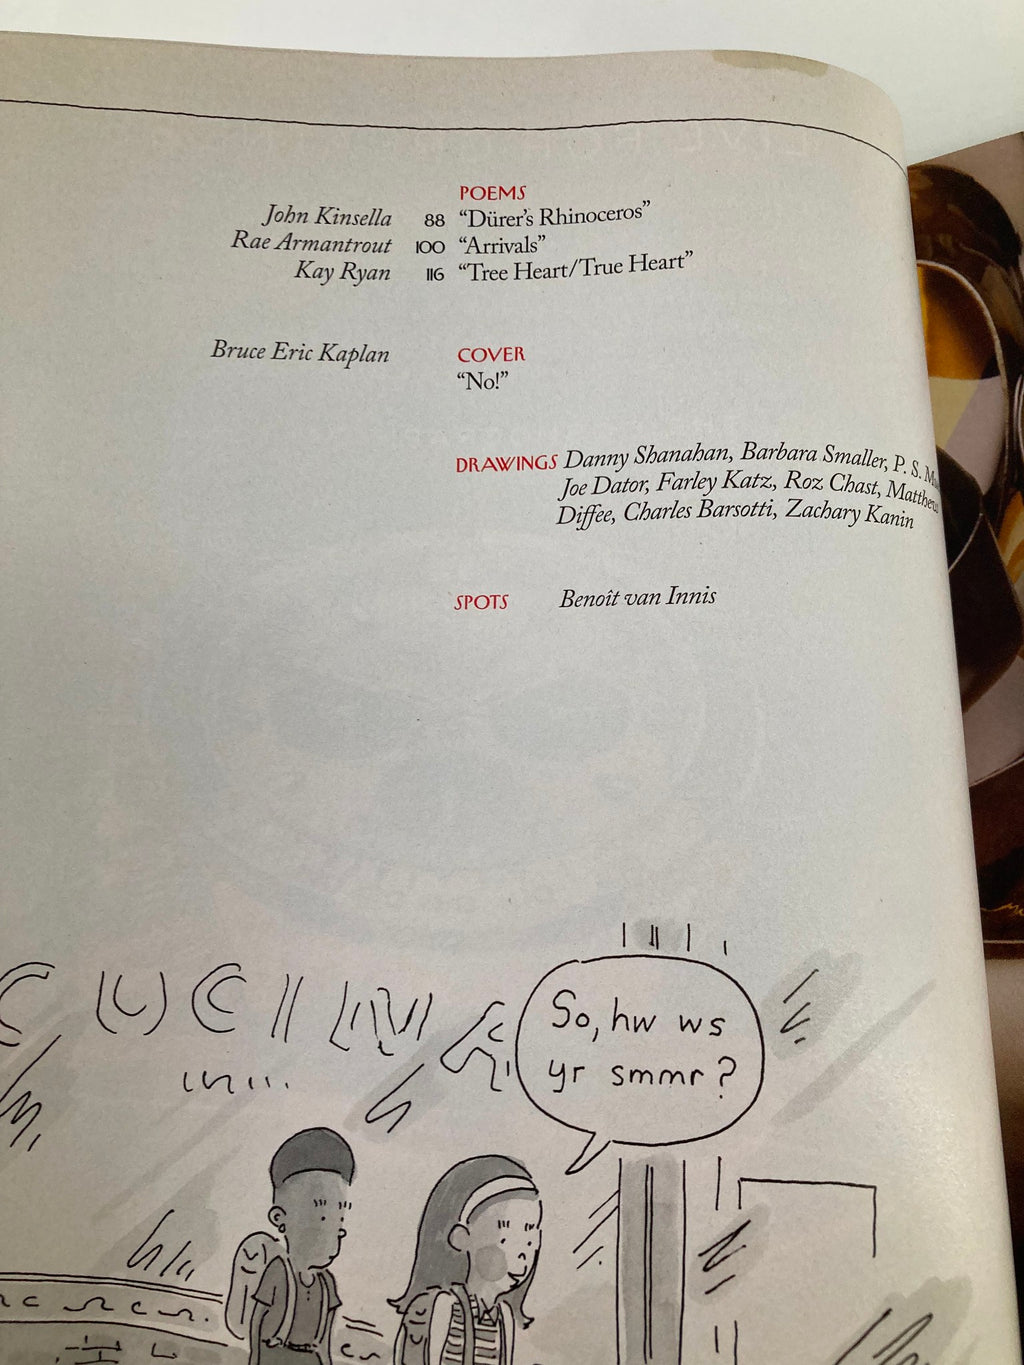 POEMS
John Kinsella 88 “Dürer’s Rhinoceros”
Rae Armantrout 100 “Arrivals”
Kay Ryan 116 “Tree Heart/True Heart”
Bruce Eric Kaplan COVER
“No!”
DRAWINGS Danny Shanahan, Barbara Smaller, P. S.
Joe Dator, Farley Katz, Roz Chast,
Diffee, Charles Barsotti, Zachary Kanin
SPOTS Benoît van Innis
So, hw ws
yr smmr?